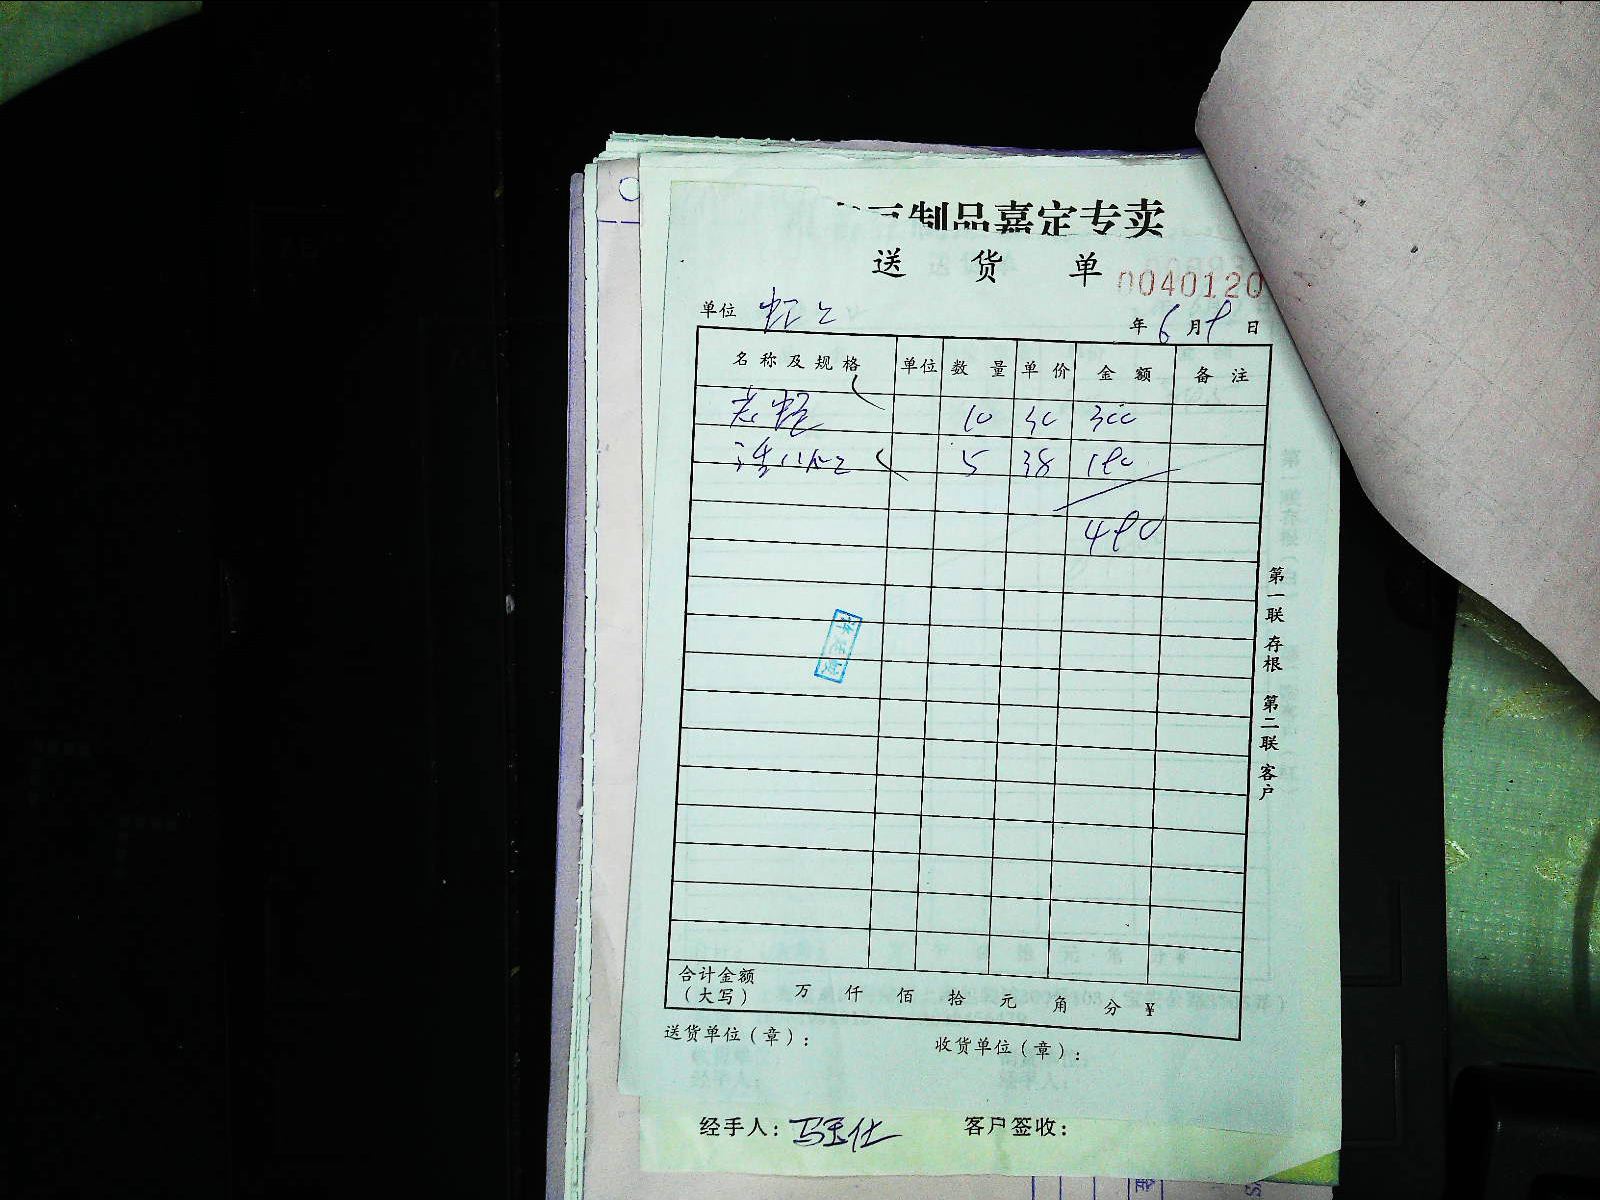 制品嘉定专卖
送货单
0040120
单位
年6月9日
名称及规格 单位 数量 单价 金额 备注
10 30 300
5 38 190
490
第一联 存根 第二联 客户
合计金额（大写） 万 仟 佰 拾 元 角 分 ¥
送货单位（章）： 收货单位（章）：
经手人： 客户签收：